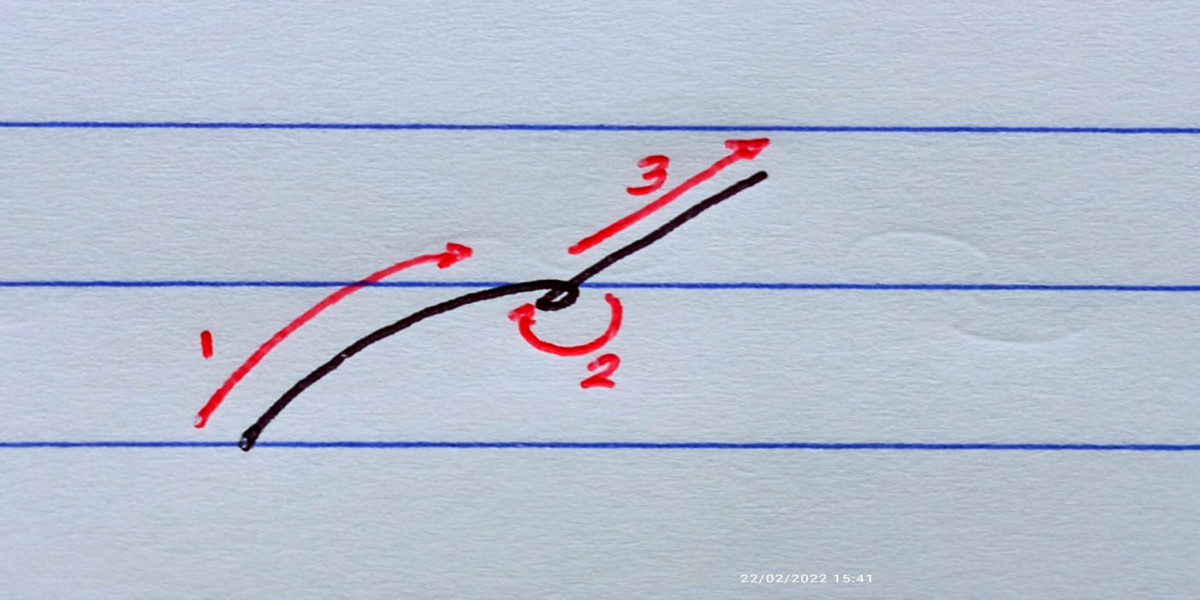 3
1
2
22/02/2022 15:41